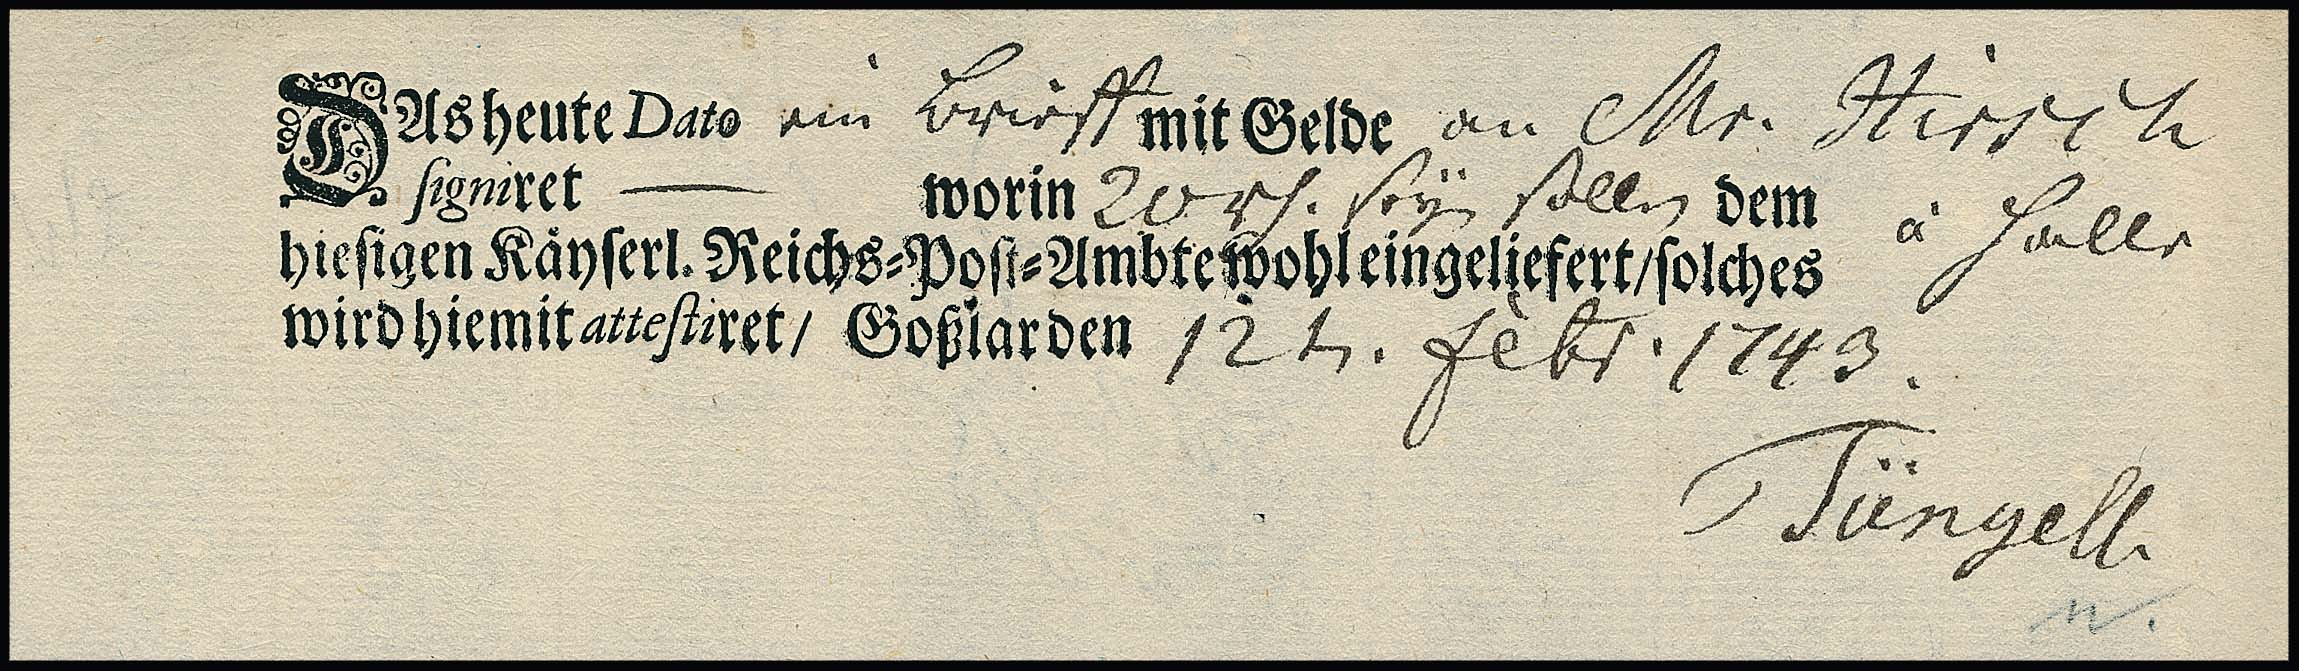 DAs heute Dato ein Brieff mit Gelde an Mr. Hirsch
signiret — worin 20 rh. seÿn sollen dem à Halle
hiesigen Kåyserl. Reichs-Post-Ambte wohl eingeliefert/ solches
wird hiemit attestiret/ Goßlar den 12 t. Febr. 1743.
Tüngell.